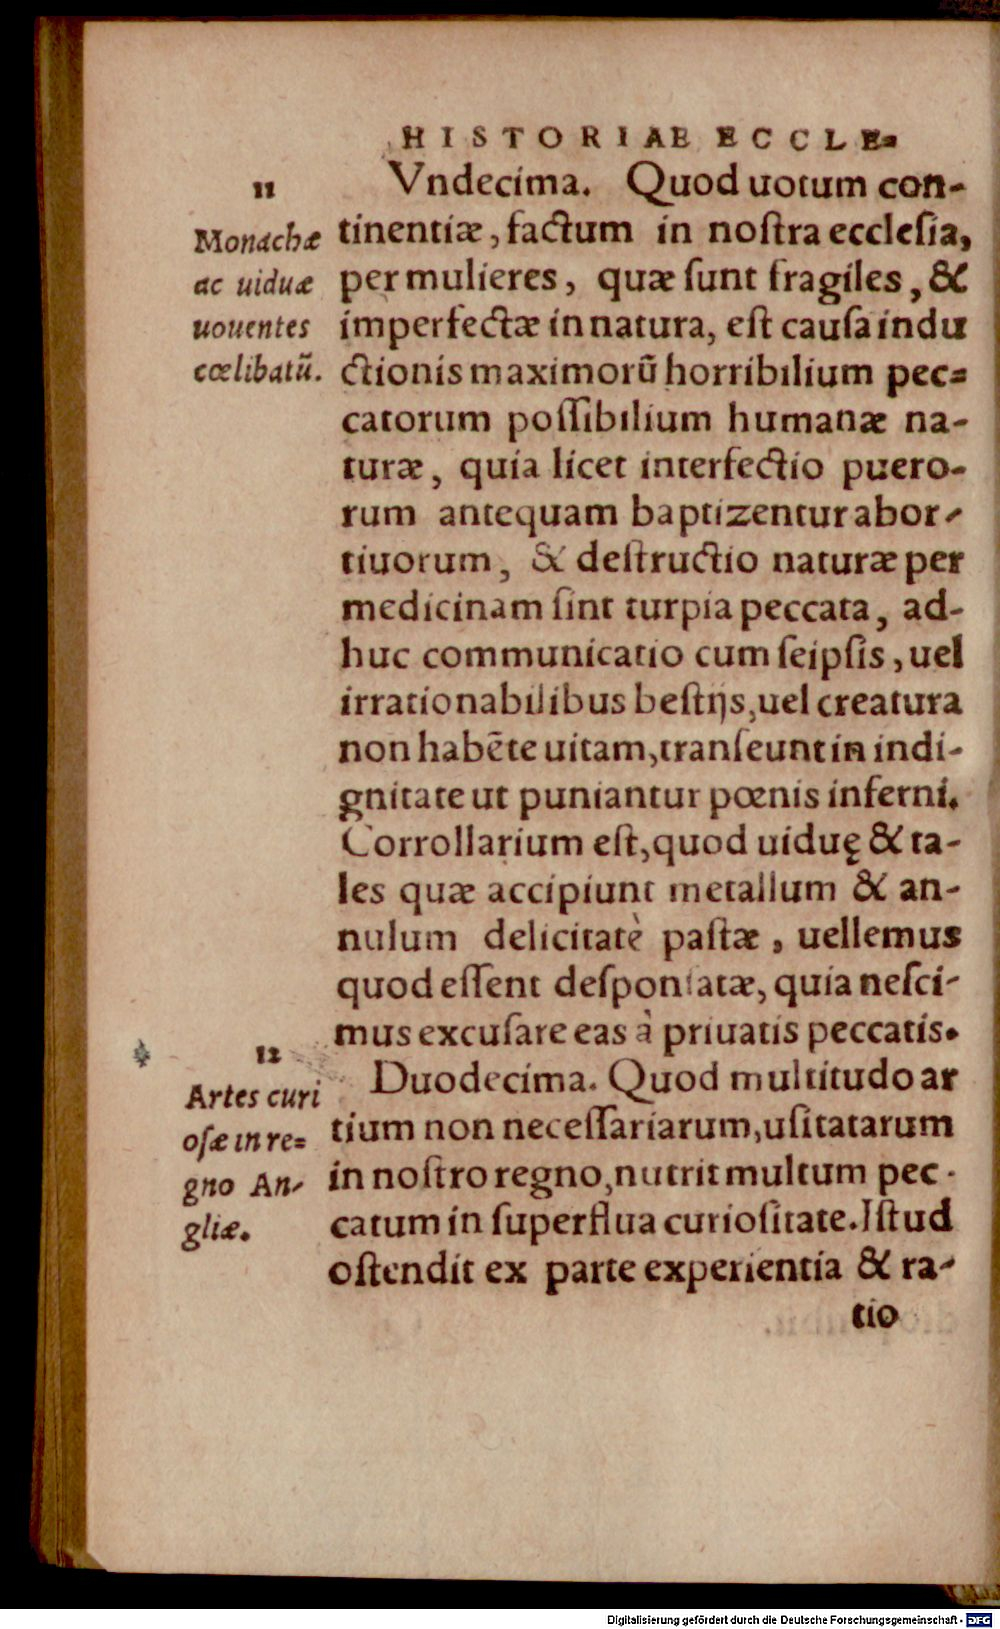 HISTORIAE ECCLE-
11
Monachæ
ac uiduæ
uouentes
cœlibatũ.
Vndecima. Quod uotum con-
tinentiæ, factum in noſtra eccleſia,
per mulieres, quæ ſunt fragiles, &
imperfectæ in natura, eſt cauſa indu
ctionis maximorũ horribilium pec-
catorum poſſibilium humanæ na-
turæ, quia licet interfectio puero-
rum antequam baptizentur abor-
tiuorum, & deſtructio naturæ per
medicinam ſint turpia peccata, ad-
huc communicatio cum ſeipſis, uel
irrationabilibus beſtijs, uel creatura
non habẽte uitam, tranſeunt in indi-
gnitate ut puniantur pœnis inferni.
Corrollarium eſt, quod uiduę & ta-
les quæ accipiunt metallum & an-
nulum delicitatè paſtæ, uellemus
quod eſſent deſponſatæ, quia neſci-
mus excuſare eas à priuatis peccatis.
12
Artes curi
oſæ in re-
gno An-
gliæ.
Duodecima. Quod multitudo ar
tium non neceſſariarum, uſitatarum
in noſtro regno, nutrit multum pec-
catum in ſuperflua curioſitate. Iſtud
oſtendit ex parte experientia & ra-
tio
Digitalisierung gefördert durch die Deutsche Forschungsgemeinschaft - DFG